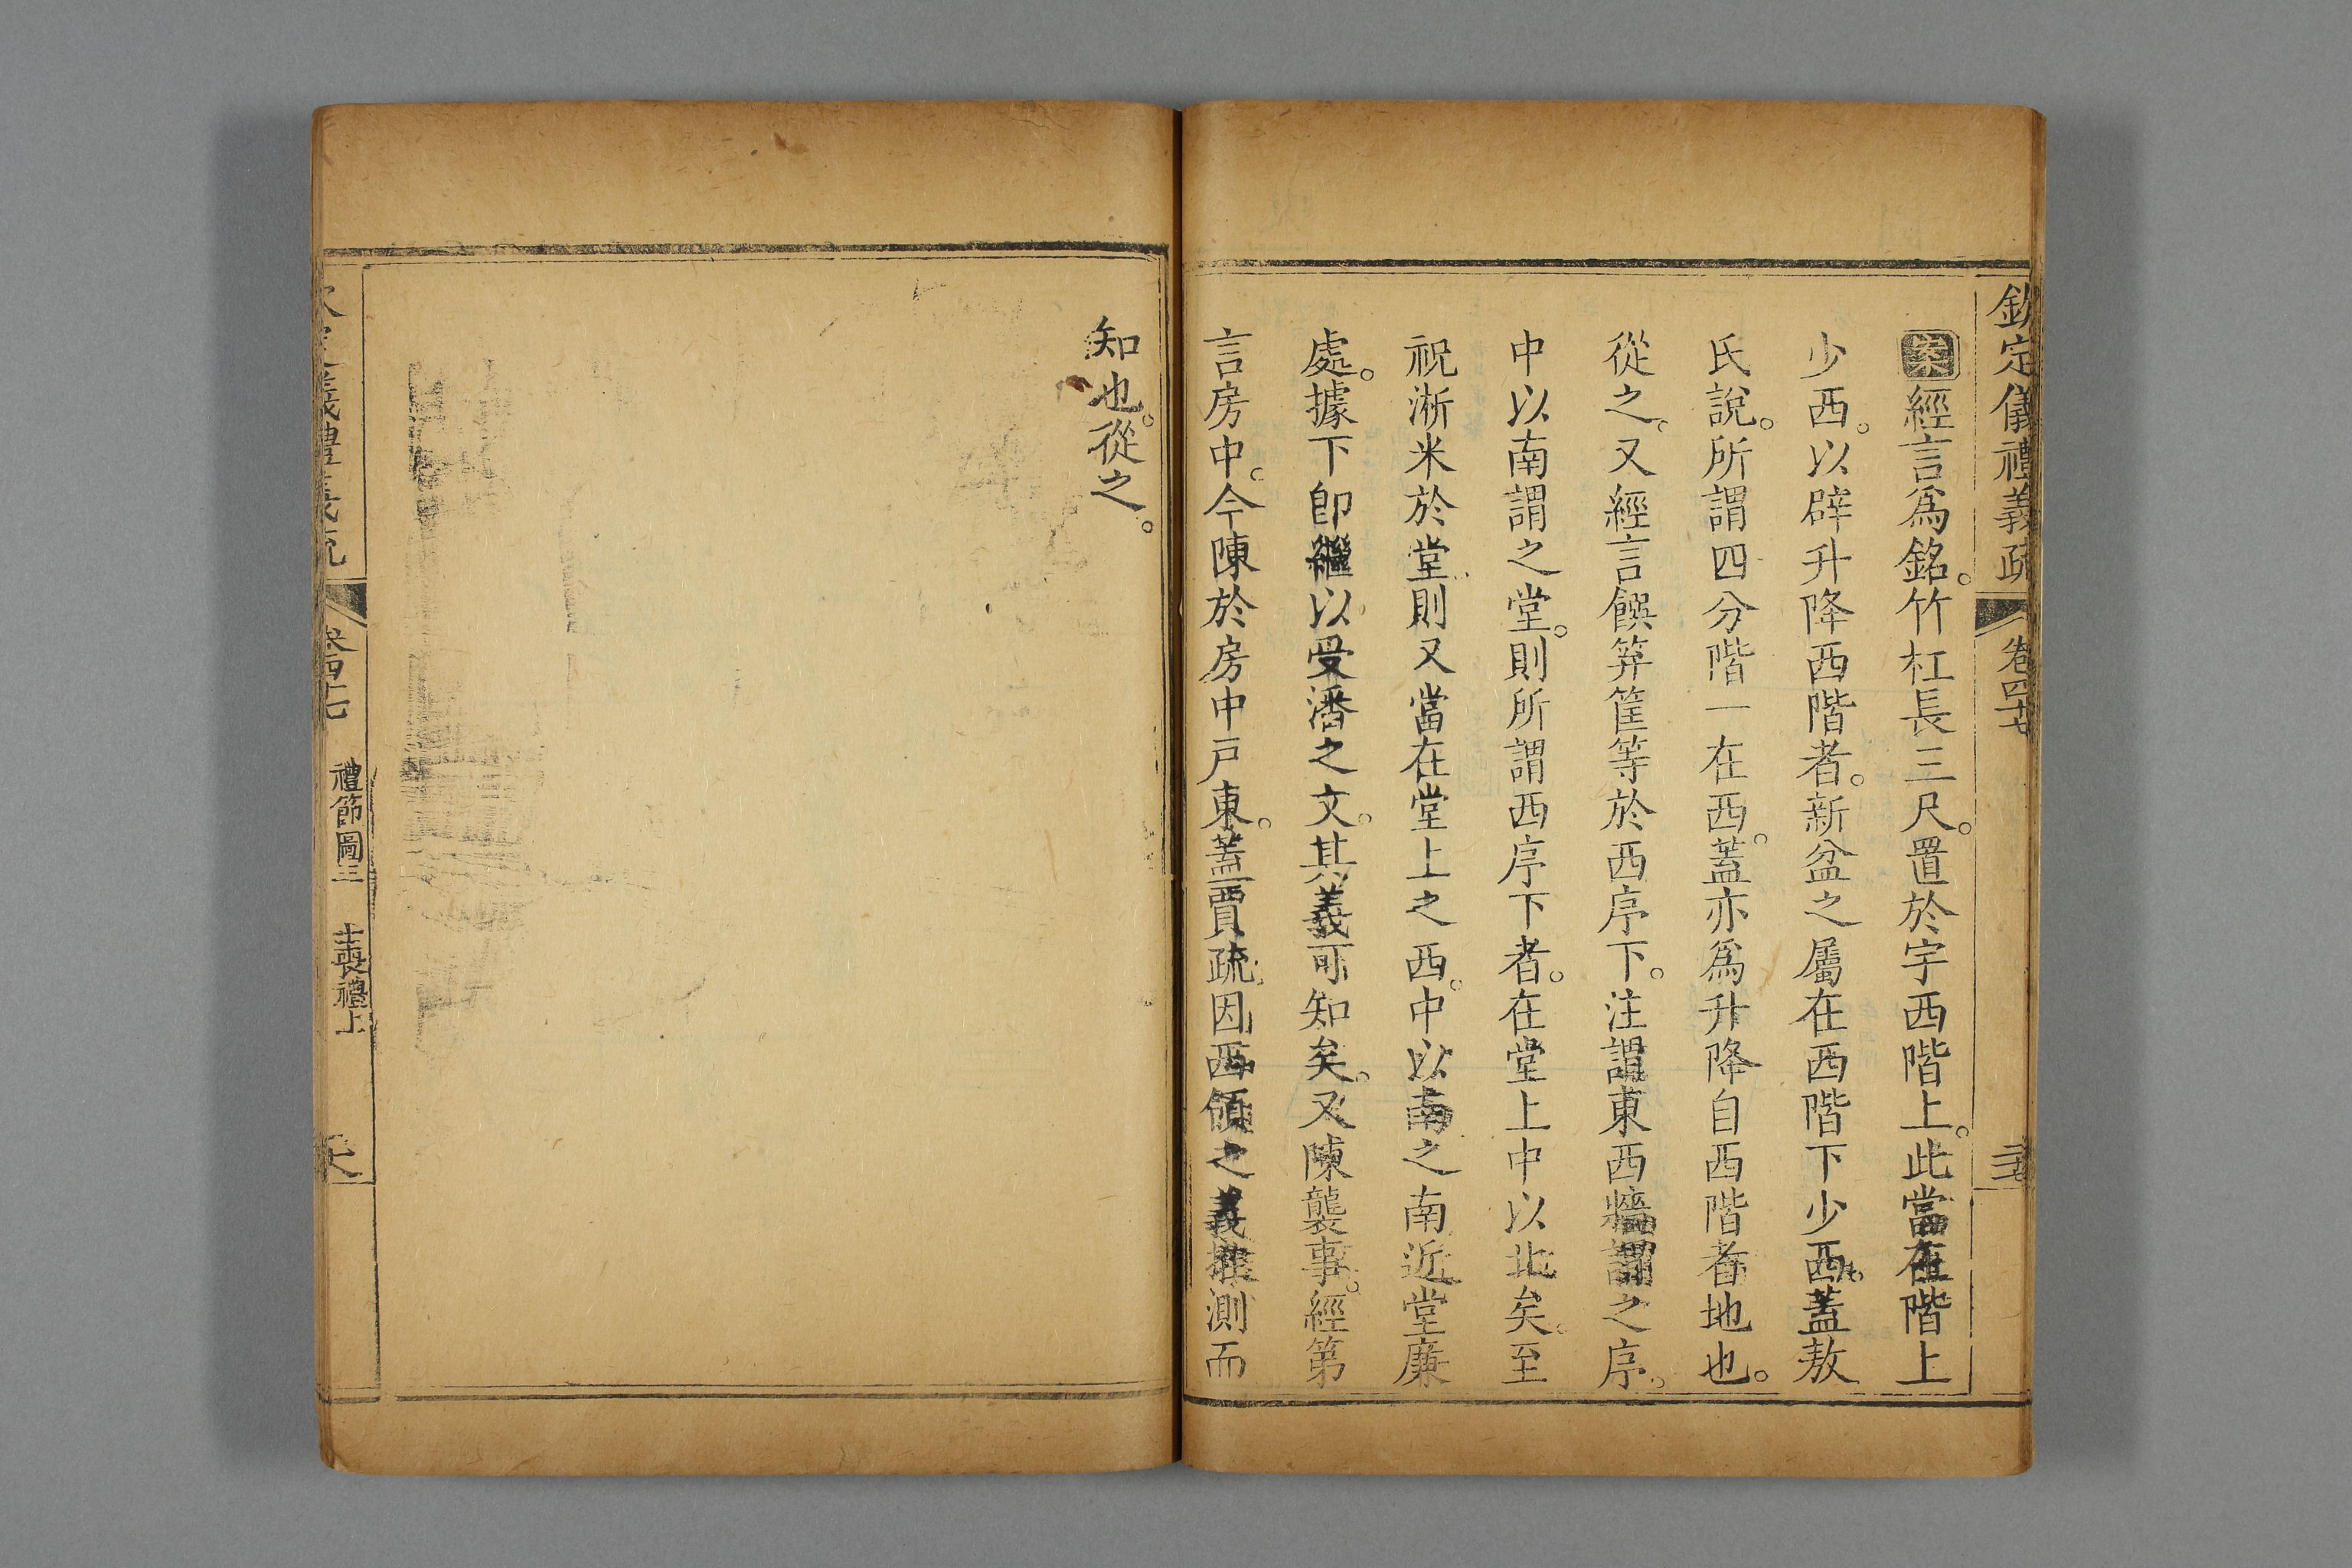 欽定儀禮義疏 卷四十七
案經言爲銘。竹杠長三尺。置於宇西階上。此當在階上
少西。以辟升降西階者。新盆之屬在西階下少西。蓋敖
氏說。所謂四分階一在西。蓋亦爲升降自西階者地也。
從之。又經言饌笲筐等於西序下。注謂東西牆謂之序。
中以南謂之堂。則所謂西序下者。在堂上中以北矣。至
祝淅米於堂則又當在堂上之西。中以南之南近堂廉
處。據下卽繼以受潘之文。其義可知矣。又陳襲事。經第
言房中。今陳於房中戸東。蓋賈疏因西領之義推測而
知也。從之。
儀禮義疏 卷四十七 禮節圖三 士喪禮上